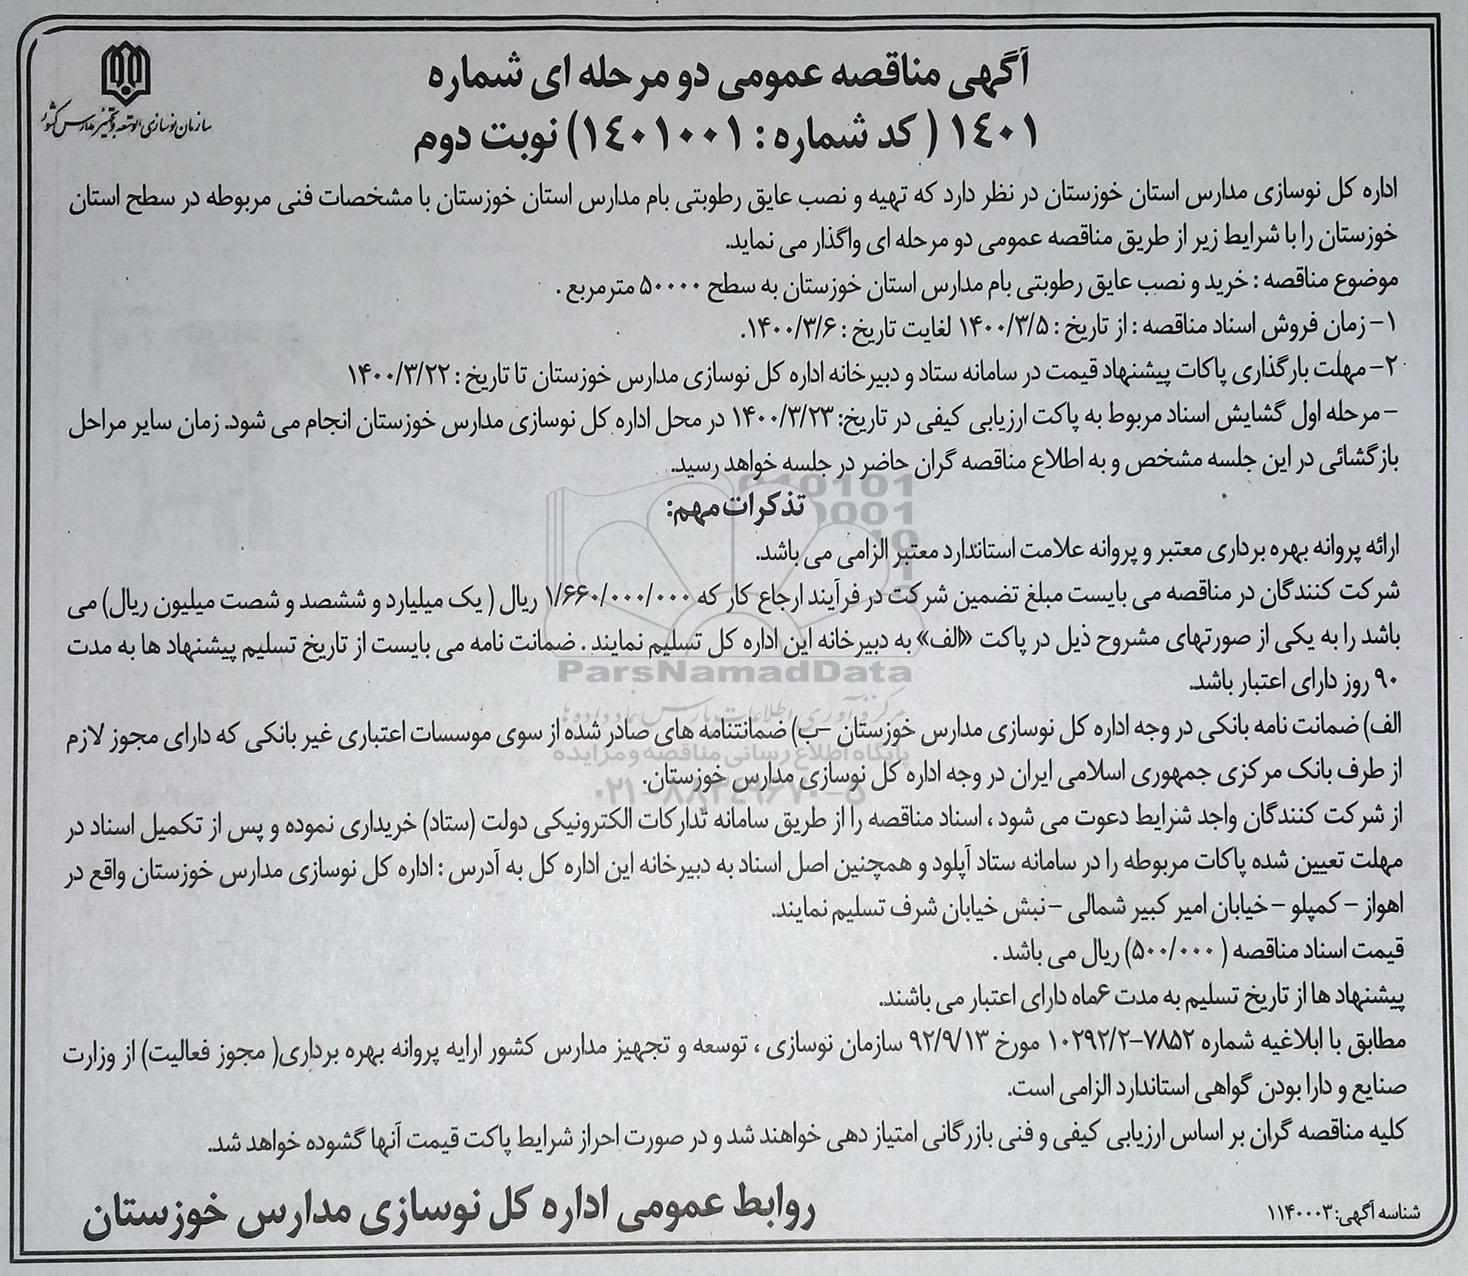 سازمان نوسازی، توسعه و تجهیز مدارس کشور
آگهی مناقصه عمومی دو مرحله ای شماره
۱٤۰۱ ( کد شماره : ۱٤۰۱۰۰۱) نوبت دوم
اداره کل نوسازی مدارس استان خوزستان در نظر دارد که تهیه و نصب عایق رطوبتی بام مدارس استان خوزستان با مشخصات فنی مربوطه در سطح استان
خوزستان را با شرایط زیر از طریق مناقصه عمومی دو مرحله ای واگذار می نماید.
موضوع مناقصه : خرید و نصب عایق رطوبتی بام مدارس استان خوزستان به سطح ۵۰۰۰۰ مترمربع .
۱- زمان فروش اسناد مناقصه : از تاریخ : ۱۴۰۰/۳/۵ لغایت تاریخ : ۱۴۰۰/۳/۶.
۲- مهلت بارگذاری پاکات پیشنهاد قیمت در سامانه ستاد و دبیرخانه اداره کل نوسازی مدارس خوزستان تا تاریخ : ۱۴۰۰/۳/۲۲
- مرحله اول گشایش اسناد مربوط به پاکت ارزیابی کیفی در تاریخ: ۱۴۰۰/۳/۲۳ در محل اداره کل نوسازی مدارس خوزستان انجام می شود. زمان سایر مراحل
بازگشائی در این جلسه مشخص و به اطلاع مناقصه گران حاضر در جلسه خواهد رسید.
تذکرات مهم:
ارائه پروانه بهره برداری معتبر و پروانه علامت استاندارد معتبر الزامی می باشد.
شرکت کنندگان در مناقصه می بایست مبلغ تضمین شرکت در فرآیند ارجاع کار که ۱/۶۶۰/۰۰۰/۰۰۰ ریال ( یک میلیارد و ششصد و شصت میلیون ریال) می
باشد را به یکی از صورتهای مشروح ذیل در پاکت «الف» به دبیرخانه این اداره کل تسلیم نمایند . ضمانت نامه می بایست از تاریخ تسلیم پیشنهاد ها به مدت
ParsNamadData
۹۰ روز دارای اعتبار باشد.
مرکز فرآوری اطلاعات پارس نماد داده ها
الف) ضمانت نامه بانکی در وجه اداره کل نوسازی مدارس خوزستان -ب) ضمانتنامه های صادر شده از سوی موسسات اعتباری غیر بانکی که دارای مجوز لازم
پایگاه اطلاع رسانی مناقصه و مزایده
از طرف بانک مرکزی جمهوری اسلامی ایران در وجه اداره کل نوسازی مدارس خوزستان.
۰۲۱-۸۸۳۴۹۶۷۰-۵
از شرکت کنندگان واجد شرایط دعوت می شود ، اسناد مناقصه را از طریق سامانه تدارکات الکترونیکی دولت (ستاد) خریداری نموده و پس از تکمیل اسناد در
مهلت تعیین شده پاکات مربوطه را در سامانه ستاد آپلود و همچنین اصل اسناد به دبیرخانه این اداره کل به آدرس : اداره کل نوسازی مدارس خوزستان واقع در
اهواز - کمپلو - خیابان امیر کبیر شمالی -نبش خیابان شرف تسلیم نمایند.
قیمت اسناد مناقصه ( ۵۰۰/۰۰۰) ریال می باشد .
پیشنهاد ها از تاریخ تسلیم به مدت ۶ماه دارای اعتبار می باشند.
مطابق با ابلاغیه شماره ۷۸۵۲-۱۰۲۹۲/۲ مورخ ۹۲/۹/۱۳ سازمان نوسازی ، توسعه و تجهیز مدارس کشور ارایه پروانه بهره برداری( مجوز فعالیت) از وزارت
صنایع و دارا بودن گواهی استاندارد الزامی است.
کلیه مناقصه گران بر اساس ارزیابی کیفی و فنی بازرگانی امتیاز دهی خواهند شد و در صورت احراز شرایط پاکت قیمت آنها گشوده خواهد شد.
روابط عمومی اداره کل نوسازی مدارس خوزستان
شناسه آگهی: ۱۱۴۰۰۰۳